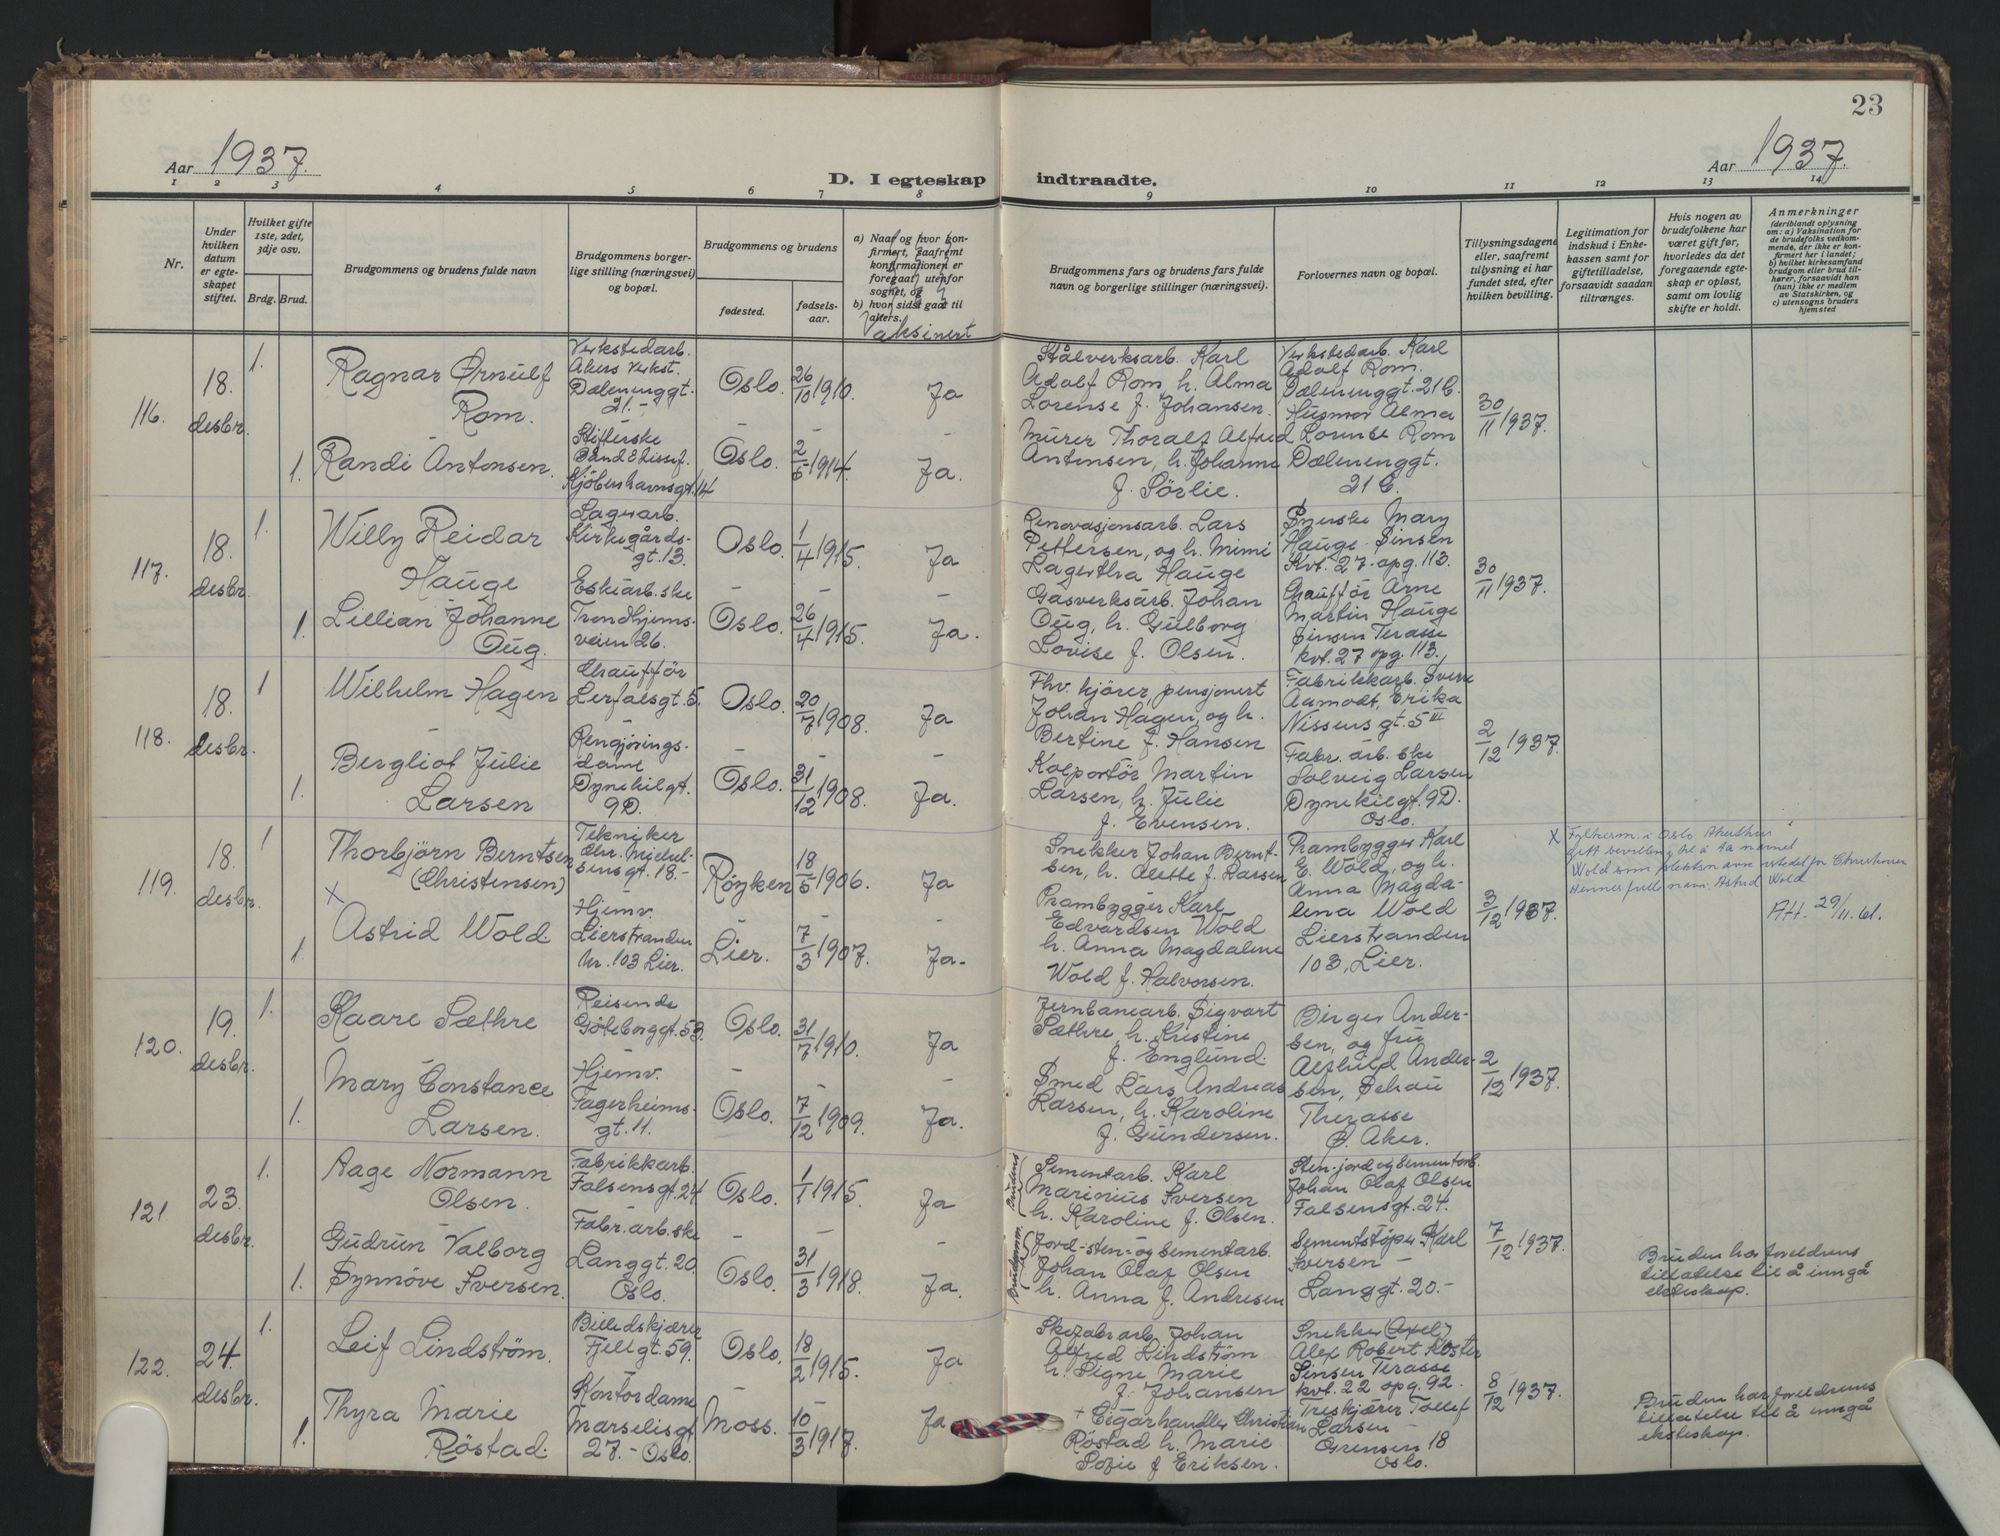 23
Aar 1937.
Aar 1937.
D. I egteskap indtraadte.
1 2 3 4 5 6 7 8 9 10 11 12 13 14
Nr.
Under hvilken datum er egte-skapet stiftet.
Hvilket gifte 1ste, 2det, 3dje osv.
Brdg. Brud.
Brudgommens og brudens fulde navn
Brudgommens borger-lige stilling (næringsvei) og bopæl.
Brudgommens og brudens
fødested.
fødsels-aar.
a) Naar og hvor kon-firmert, saafremt konfirmationen er foregaat utenfor sognet, og
b) hvor sidst gaat til alters.
Vaksinert
Brudgommens fars og brudens fars fulde navn og borgerlige stillinger (næringsvei).
Forlovernes navn og bopæl.
Tillysningsdagene eller, saafremt tillysning ei har fundet sted, efter hvilken bevilling.
Legitimation for indskud i Enke-kassen samt for giftetilladelse, forsaavidt saadan tiltrænges.
Hvis nogen av brudefolkene har været gift før, hvorledes da det foregaaende egte-skap er opløst, samt om lovlig skifte er holdt.
Anmerkninger
(deriblandt oplysning om: a) Vaksination for de brudefolks vedkom-mende, der ikke er kon-firmert her i landet;
b) hvilket kirkesamfund brudgom eller brud til-hører, forsaavidt han (hun) ikke er medlem av Statskirken, og
c) utensogns bruders hjemsted
116.
18. desbr.
1.
Ragnar Ørnulf Rom.
Verkstedarb. Akers Verkst. Dælenenggt. 21.-
Oslo. 26/10 1910.
Ja
Stålverksarb. Karl Adolf Rom h. Alma Lorense f. Johansen.
Verkstedarb. Karl Adolf Rom. Dælenenggt. 21 C.
Husmor Alma Lorense Rom Dælenenggt. 21 C.
30/11 1937.
1. Randi Antonsen.
Kjöbenhavnsgt. 14
Oslo. 2/5 1914.
Ja.
Murer Thoralf Alfred Antonsen, h. Johanne f. Sörlie.
117.
18. desbr.
1.
Willy Reidar Hauge
Lagerarb. Kirkegårds-gt. 13.
Oslo. 1/4 1915.
Ja
Renovasjonsarb. Lars Pettersen, og h. Mimi Lagertha Hauge
Syerske Mary Hauge Sinsen Kvt. 27. opg. 113.
30/11 1937.
1. Lillian Johanne Oug.
Eskearb.ske Trondhjems-veien 26.
Oslo. 26/4 1915.
Ja.
Gasverksarb. Johan Oug, h. Gulborg Lovise f. Olsen.
Chaufför Arne Martin Hauge Sinsen Terasse kvt. 27 opg. 113.
118.
18. desbr.
1
Wilhelm Hagen
Chaufför Lerfalsgt. 5.
Oslo. 20/7 1908.
Ja
Fhv. kjörer, pensjonert Johan Hagen, og h. Bertine f. Hansen
Fabrikkarb. Sverre Aamodt, Erika Nissens gt. 5 III
2/12 1937.
1. Bergliot Julie Larsen
Rengjörings-dame Dynekilgt. 9D.
Oslo. 31/12 1908.
Ja.
Kolportör Martin Larsen, h. Julie f. Evensen.
Fabr.arb.ske Solveig Larsen Dynekilgt. 9D. Oslo.
119.
18. desbr.
1
Thorbjörn Berntsen (Christensen)
Tekniker Chr. Michel-sensgt. 18.-
Røyken 18/5 1906.
Ja
Snekker Johan Bernt-sen, h. Alette f. Larsen
Prambygger Karl E. Wold, og h. Anna Magda-lena Wold Lierstranden 103, Lier.
3/12 1937.
x Fylkesm. i Oslo Akershus
gitt bevilling til å ta navnet
Wold som slektsnavn istedet for Christensen
Hennes fulle navn: Astrid Wold
AH. 29/11.61.
x
1. Astrid Wold.
Hjemv. Lierstranden Nr. 103 Lier.
Lier. 7/3 1907.
Ja.
Prambygger Karl Edvardsen Wold h. Anna Magdalene Wold f. Halvorsen.
120.
19. desbr.
1.
Kaare Sæthre
Reisende Göteborggt. 53.
Oslo. 31/7 1910.
Ja
Jernbanearb. Sigvart Sæthre, h. Kristine f. Englund.
Birger Ander-sen, og fru Alfhild Ander-sen, Schau Therasse Ø. Aker.
2/12 1937.
1. Mary Constance Larsen.
Hjemv. Fagerheims-gt. 11.
Oslo. 7/12 1909.
Ja.
Smed Lars Andreas Larsen, h. Karoline f. Gundersen.
121.
23. desbr.
1.
Aage Normann Olsen.
Fabrikkarb. Falsensgt. 24
Oslo. 1/1 1915.
Ja
Brudens
Sementarb. Karl Marinius Iversen h. Karoline f. Olsen.
Sten-jord og sementarb. Johan Olaf Olsen Falsensgt. 24.
7/12 1937.
1. Gudrun Valborg Synnöve Iversen.
Fabr.arb.ske Langgt. 20. Oslo.
Oslo. 31/3 1918.
Ja.
Brudgomm.
Jord-sten-og sementarb. Johan Olaf Olsen h. Anna f. Andresen
Sementstöper Karl Iversen - Langgt. 20.-
Bruden har foreldrens tillatelse til å inngå ekteskap.
122.
24. desbr.
1.
Leif Lindström.
Billedskjærer Fjellgt. 59.
Oslo. 18/2 1915.
Ja
Skofabr.arb. Johan Alfred Lindström h. Signe Marie f. Johansen
Snekker (Axel) Alex Robert Köster Sinsen Terasse kvt. 22 opg. 92.
8/12 1937.
1. Thyra Marie Röstad.
Kontordame Marselisgt 27.- Oslo.
Moss. 10/3 1917.
Ja
+ Cigarhandler Christian Röstad h. Marie Sofie f Eriksen.
Treskjærer Tollef Larsen - Grensen 18 Oslo.
Bruden har foreldrenes tillatelse til å inngå ekteskap.